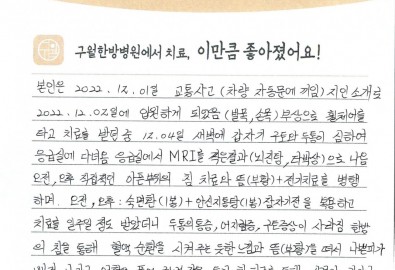 구월한방병원에서 치료, 이만큼 좋아졌어요!
본인은 2022. 12. 01일 교통사고 (차량 자동문에 끼임) 지인 소개로
2022. 12. 02일에 입원하게 되었음 (발목, 손목) 부상으로 휠체어를
타고 치료를 받던중 12. 04일 새벽에 갑자기 구토와 두통이 심하여
응급실에 다녀옴 응급실에서 MRI를 찍은결과 (뇌진탕, 타박상)으로 나옴
오전, 오후 직접적인 아픈부위의 침 치료와 뜸(부황)+전기치료를 병행
하며. 오전, 오후: 숙면환(1봉)+안신지통탕(1봉) 감자기전을 복용하고
치료를 일주일 정도 받았더니 두통의통증, 어지럼증, 구토증상이 사라짐 한방
의 침을 통해 혈액 순환을 시켜주는 듯한 느낌과 뜸(부황)을 떠서 나쁜피가